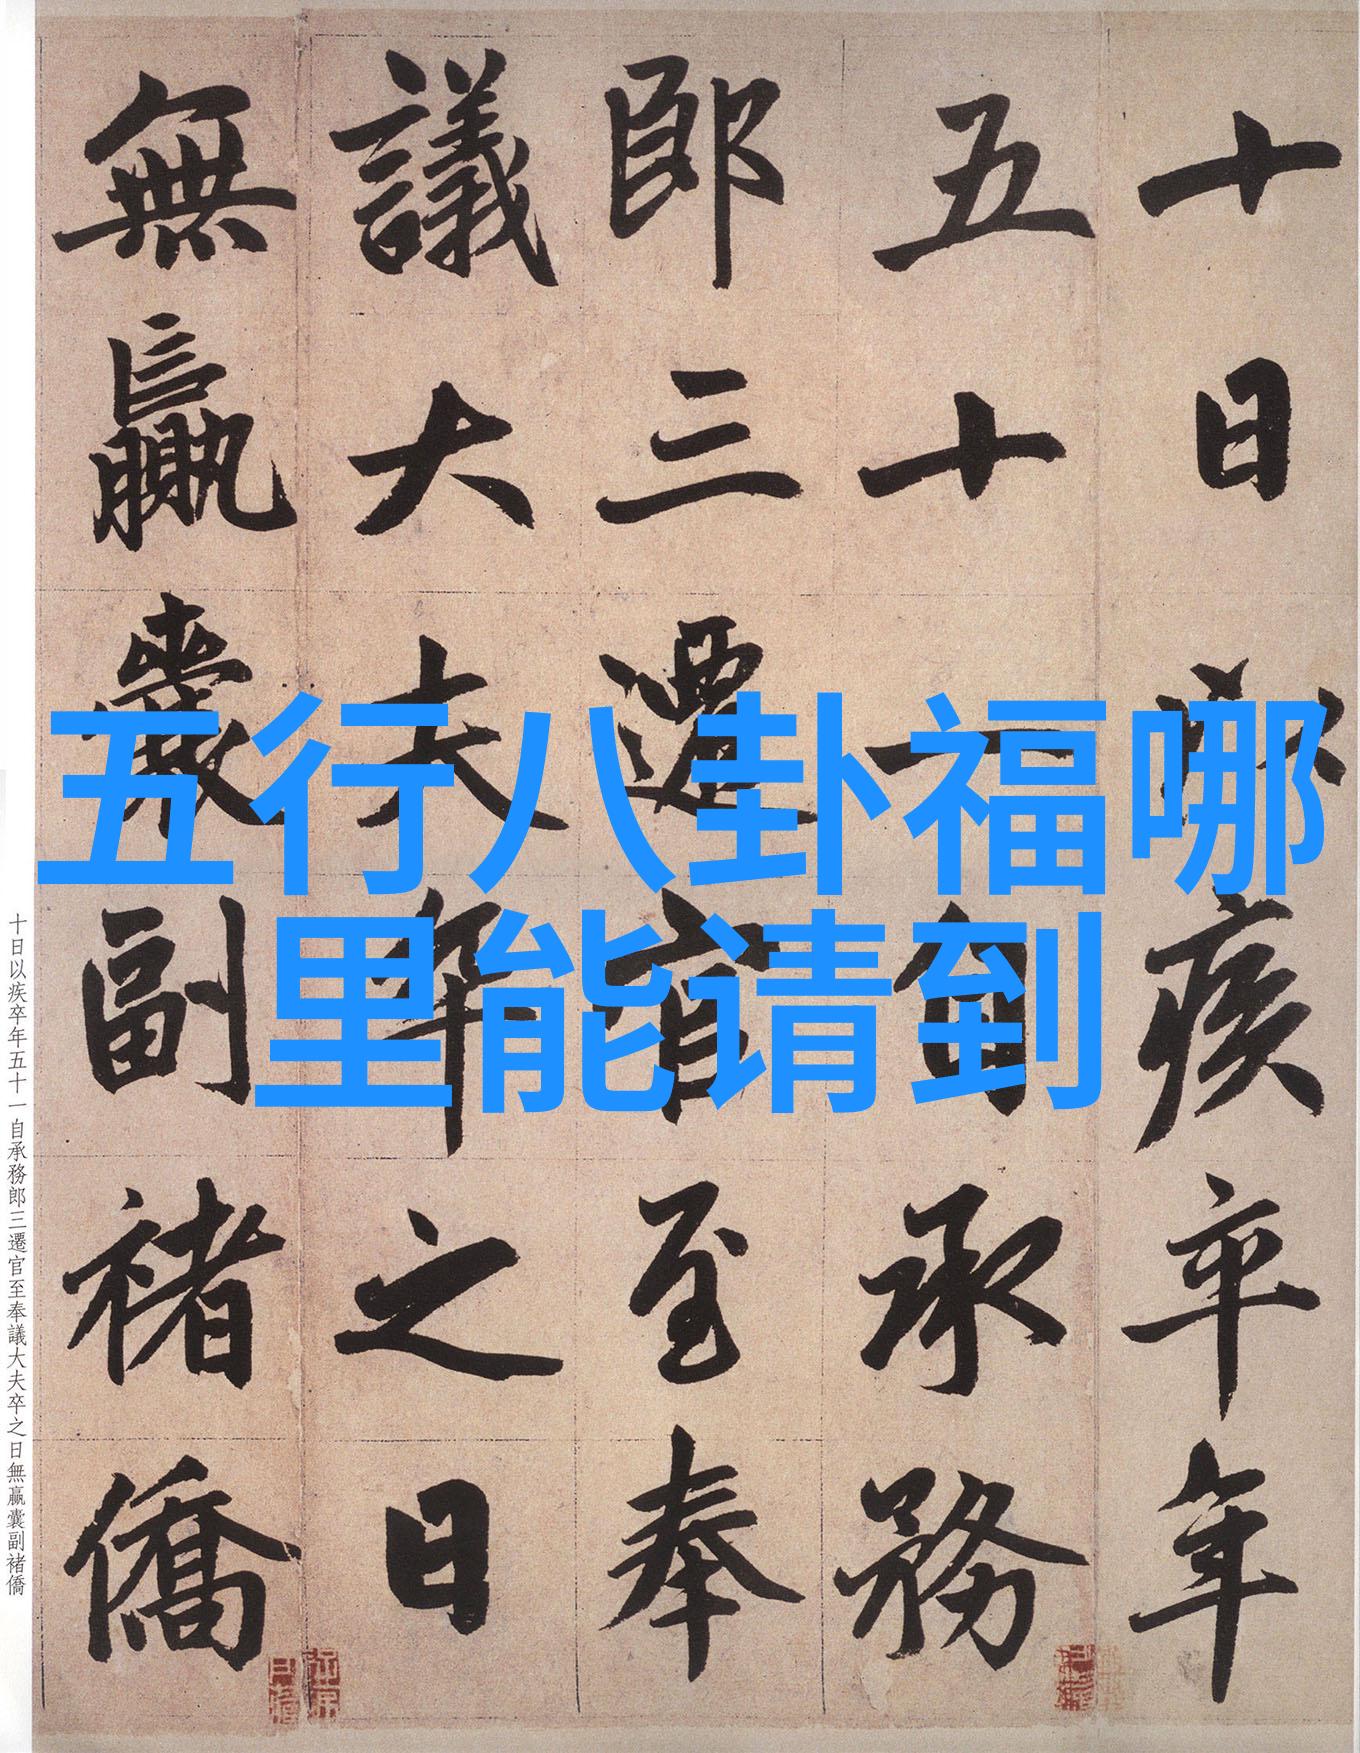 十日以疾卒年
五十一自承務
郎三遷官至奉
議大夫卒之日
無贏囊副褚僑
五行八卦福哪
里能请到
十日以疾卒年五十一自承務郎三遷官至奉議大夫卒之日無贏囊副褚僑